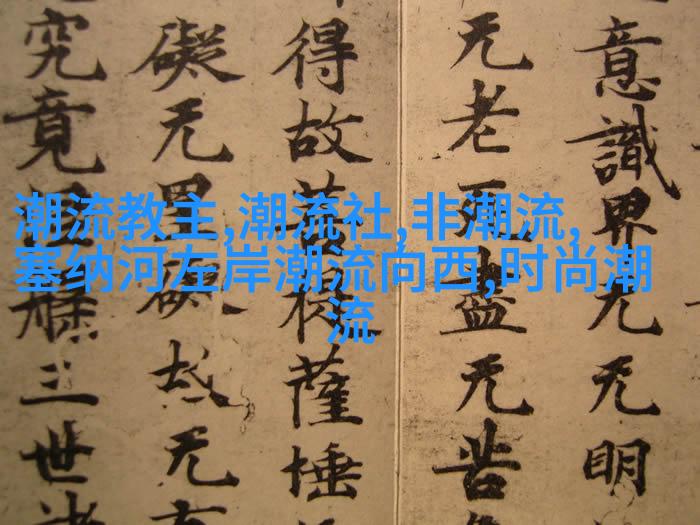 潮流教主,潮流社,非潮流,
塞纳河左岸潮流向西,时尚潮
流
意識界无无明
无老死盡无苦
得故菩提薩埵
礙无罣礙故无有
究竟涅槃三世諸